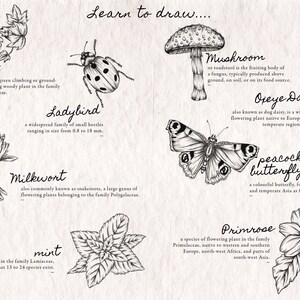 Learn to draw....
green climbing or ground-
g woody plant in the family
Ladybird
a widespread family of small beetles
ranging in size from 0.8 to 18 mm.
Milkwort
also commonly known as snakeroots, a large genus of
flowering plants belonging to the family Polygalaceae.
mint
in the family Lamiaceae,
at 13 to 24 species exist.
Mushroom
or toadstool is the fruiting body of
a fungus, typically produced above
ground, on soil, or on its food source.
Oxeye Da
also known as dog daisy, is a wi
flowering plant native to Europe
temperate region
peacock
butterfly
a colourful butterfly, fo
and temperate Asia as f
Primrose
a species of flowering plant in the family
Primulaceae, native to western and southern
Europe, north-west Africa, and parts of
south-west Asia.